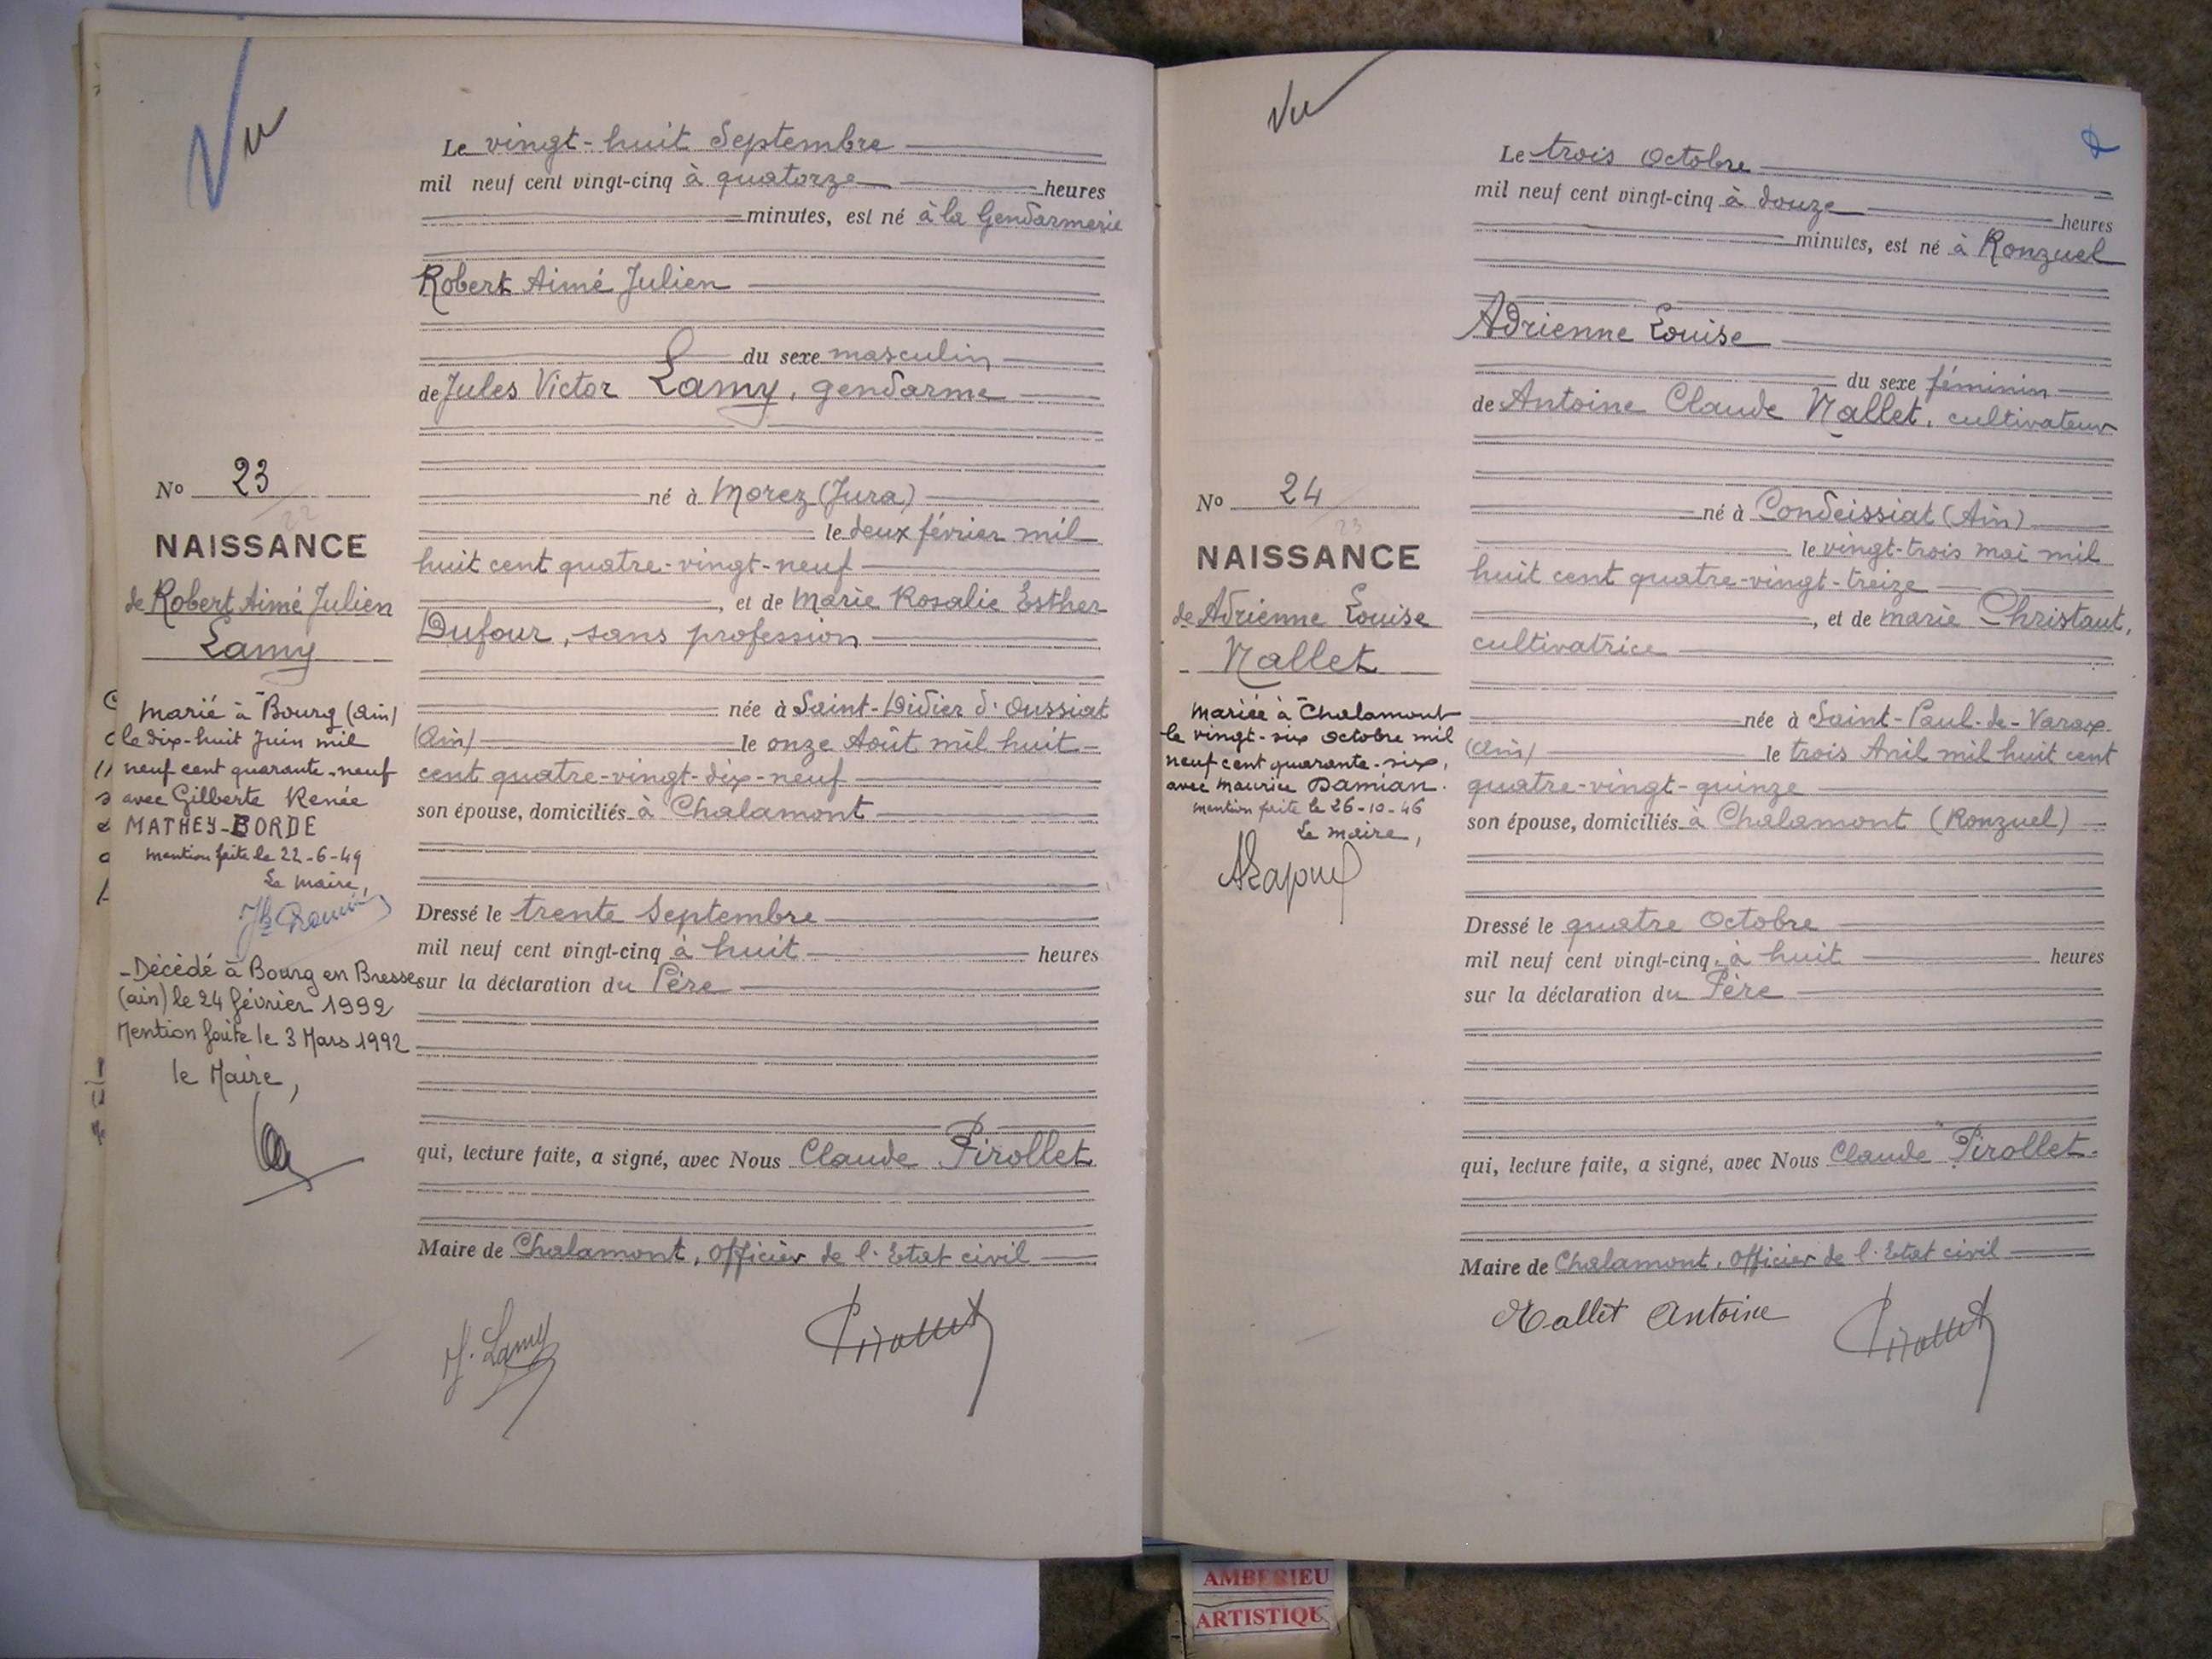 Vu
Le vingt-huit Septembre
mil neuf cent vingt-cinq à quatorze heures
minutes, est né à la Gendarmerie
Robert Aimé Julien
du sexe masculin
de Jules Victor Lamy, gendarme
né à Morez (Jura)
le deux février mil
huit cent quatre-vingt-neuf
, et de Marie Rosalie Esther
Dufour, sans profession
née à Saint-Didier d'Oussiat
(Ain) le onze Août mil huit
cent quatre-vingt-dix-neuf
son épouse, domiciliés à Chalamont
Dressé le trente Septembre
mil neuf cent vingt-cinq à huit heures
sur la déclaration du Père
qui, lecture faite, a signé, avec Nous Claude Pirollet
Maire de Chalamont, Officier de l'Etat civil
J. Lamy
Pirollet
No 23
22
NAISSANCE
de Robert Aimé Julien
Lamy
Marié à Bourg (Ain)
le dix-huit Juin mil
neuf cent quarante-neuf
avec Gilberte Renée
MATHEY-BORDE
mention faite le 22-6-49
Le Maire,
-Décédé à Bourg en Bresse
(ain) le 24 février 1992
Mention faite le 3 Mars 1992
le Maire,
Vu
Le trois Octobre
mil neuf cent vingt-cinq à douze heures
minutes, est né à Ronzuel
Adrienne Louise
du sexe féminin
de Antoine Claude Nallet, cultivateur
né à Condeissiat (Ain)
le vingt-trois mai mil
huit cent quatre-vingt-treize
, et de Marie Christaut,
cultivatrice
née à Saint-Paul-de-Varax
(Ain) le trois Avril mil huit cent
quatre-vingt-quinze
son épouse, domiciliés à Chalamont (Ronzuel)
Dressé le quatre Octobre
mil neuf cent vingt-cinq à huit heures
sur la déclaration du Père
qui, lecture faite, a signé, avec Nous Claude Pirollet
Maire de Chalamont, Officier de l'Etat civil
Nallet Antoine
Pirollet
No 24
23
NAISSANCE
de Adrienne Louise
Nallet
Mariée à Chalamont
le vingt-six Octobre mil
neuf cent quarante-six,
avec Maurice Damian.
mention faite le 26-10-46
Le Maire,
AMBERIEU
ARTISTIQU